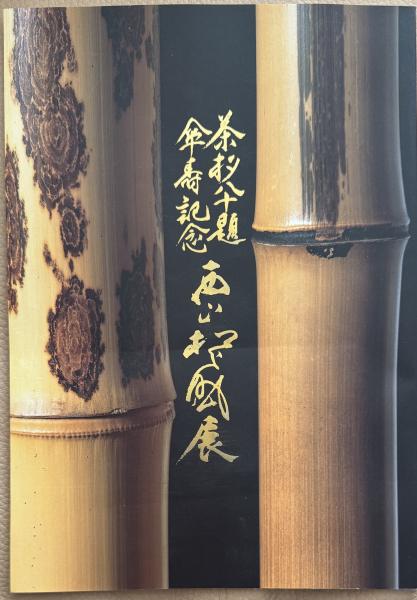 茶杓八十題
傘寿記念
西山松之助展